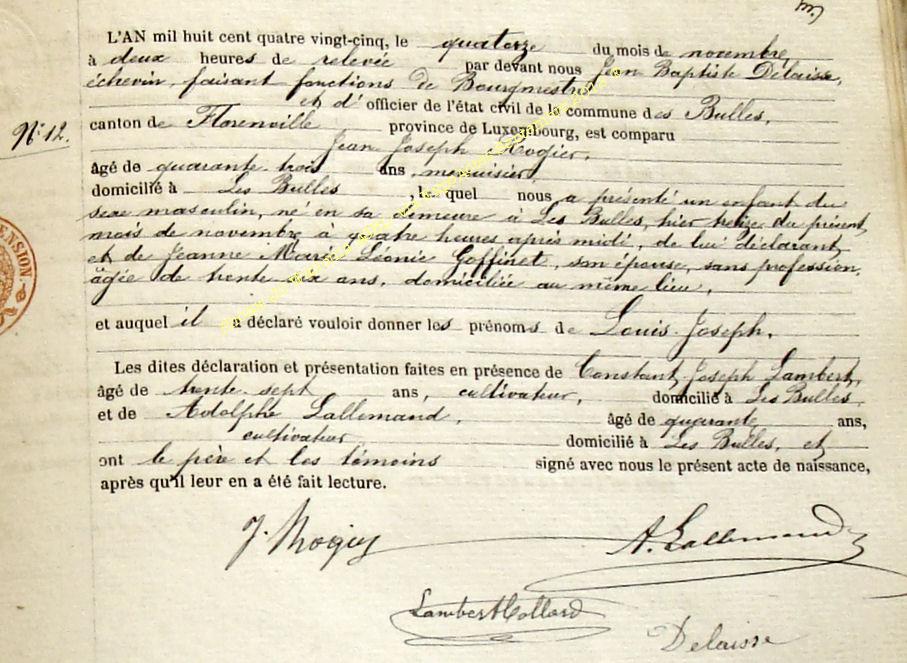 L'AN mil huit cent quatre vingt-cinq, le quatorze du mois de novembre,
à deux heures de relevée par devant nous Jean Baptiste Delaisse,
échevin, faisant fonctions de Bourgmestre
et d' officier de l'état civil de la commune des Bulles,
N° 12.
canton de Florenville province de Luxembourg, est comparu
Jean Joseph Rogier,
âgé de quarante trois ans, menuisier,
domicilié à Les Bulles , le quel nous a présenté un enfant du
sexe masculin, né en sa demeure à Les Bulles, hier treize du présent
mois de novembre à quatre heures après midi, de lui déclarant
et de Jeanne Marie Léonie Goffinet, son épouse, sans profession,
âgée de trente six ans, domiciliée au même lieu,
et auquel il a déclaré vouloir donner les prénoms de Louis-Joseph.
Les dites déclaration et présentation faites en présence de Constant-Joseph Lambert,
âgé de trente sept ans, cultivateur, domicilié à Les Bulles,
et de Adolphe Lallemand, âgé de quarante ans,
cultivateur domicilié à Les Bulles, et
ont le père et les témoins signé avec nous le présent acte de naissance,
après qu'il leur en a été fait lecture.
J. Rogier A. Lallemand
Lambert Collard
Delaisse